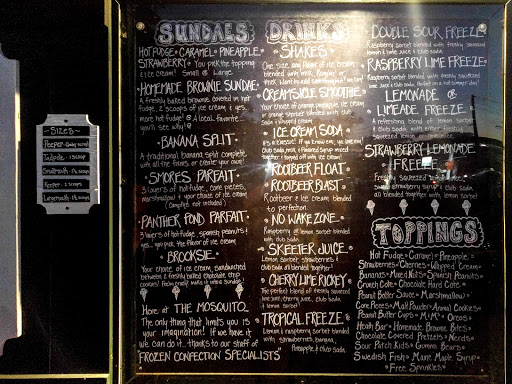 ~Sizes~
Peeper - Baby scoop
Tadpole - 1 scoop
Smallmouth - 1½ scoop
Keeper - 2 scoops
Largemouth - 2½ scoops
SUNDAES
HOT FUDGE • CARAMEL • PINEAPPLE
STRAWBERRY • You pick the topping
& ice cream! Small or Large
• HOMEMADE BROWNIE SUNDAE •
A freshly baked brownie covered in hot
fudge, 2 scoops of ice cream & yes...
more hot fudge! A local favorite...
you'll see why!
• BANANA SPLIT •
A traditional banana split complete
with all the
• SMORES PARFAIT •
3 layers of hot fudge, cone pieces,
marshmallow & your choice of ice cream
(Campfire not included)
• PANTHER POND PARFAIT •
3 layers of hot fudge, spanish peanuts &
yes... you pick the flavor of ice cream
• BROOKSIE •
Your choice of ice cream, sandwiched
between 2 freshly baked chocolate chip
cookies!
Here at THE MOSQUITO
The only thing that limits you is
your imagination. If we have it
we can do it.. thanks to our staff of
"FROZEN CONFECTION SPECIALISTS"
DRINKS
• SHAKES •
One size, any flavor of ice cream
blended with milk.
• CREAMSICLE SMOOTHIE •
Your choice of orange, pineapple, ice cream
or orange sherbet blended with club
soda & whipped cream
• ICE CREAM SODA •
It's a classic!! If you know em, you love em!
Club soda, milk & flavored syrup mixed
together & topped off with ice cream!
• ROOTBEER FLOAT •
• ROOTBEER BLAST •
Rootbeer & ice cream blended
to perfection
• NO WAKE ZONE •
Raspberry & lemon sorbet blended
with club soda.
• SKEETER JUICE •
Lemon sorbet, strawberries &
club soda all blended together!
• CHERRY LIME RICKEY •
The perfect blend of freshly squeezed
lime juice, cherry juice, club soda,
& lemon sorbet
• TROPICAL FREEZE •
Lemon & raspberry sorbet blended
with strawberries, banana,
Pineapple & club soda.
DOUBLE SOUR FREEZE
Raspberry sorbet blended with freshly squeezed
lemon & lime juice & club soda
• RASPBERRY LIME FREEZE •
Raspberry sorbet blended with freshly squeezed
lime juice & club soda. Perfect on a hot summer day!
LEMONADE or
LIMEADE FREEZE •
A refreshing blend of lemon sorbet
& club soda with either freshly
squeezed lemon or lime juice
STRAWBERRY LEMONADE
• FREEZE •
Freshly squeezed
strawberry syrup & club soda
all blended together with lemon sorbet
TOPPINGS
Hot Fudge • Caramel • Pineapple •
Strawberries • Cherries • Whipped Cream •
Bananas • Mixed Nuts • Spanish Peanuts •
Crunch Cote • Chocolate Hard Cote •
Peanut Butter Sauce • Marshmallow •
Cone Pieces • Malt Powder • Animal Cookies •
Peanut Butter Cups • M&M's • Oreos •
Heath Bar • Homemade Brownie Bites •
Chocolate Covered Pretzels • Nerds •
Sour Patch Kids • Gummi Bears •
Swedish Fish • Maine Maple Syrup •
• Free Sprinkles •